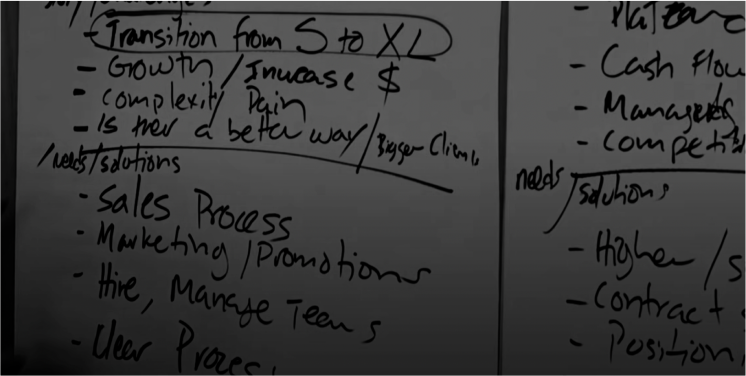 - Transition from S to XL
- Growth / Increase $
- Complexity Pain
- Is ther a better way / Bigger Clients
/needs/solutions
- Sales Process
- Marketing / Promotions
- Hire, Manage Teams
- Clear Process
- Cash Flow
- Managers
- Competit
needs / solutions
- Higher / S
- Contract
- Position